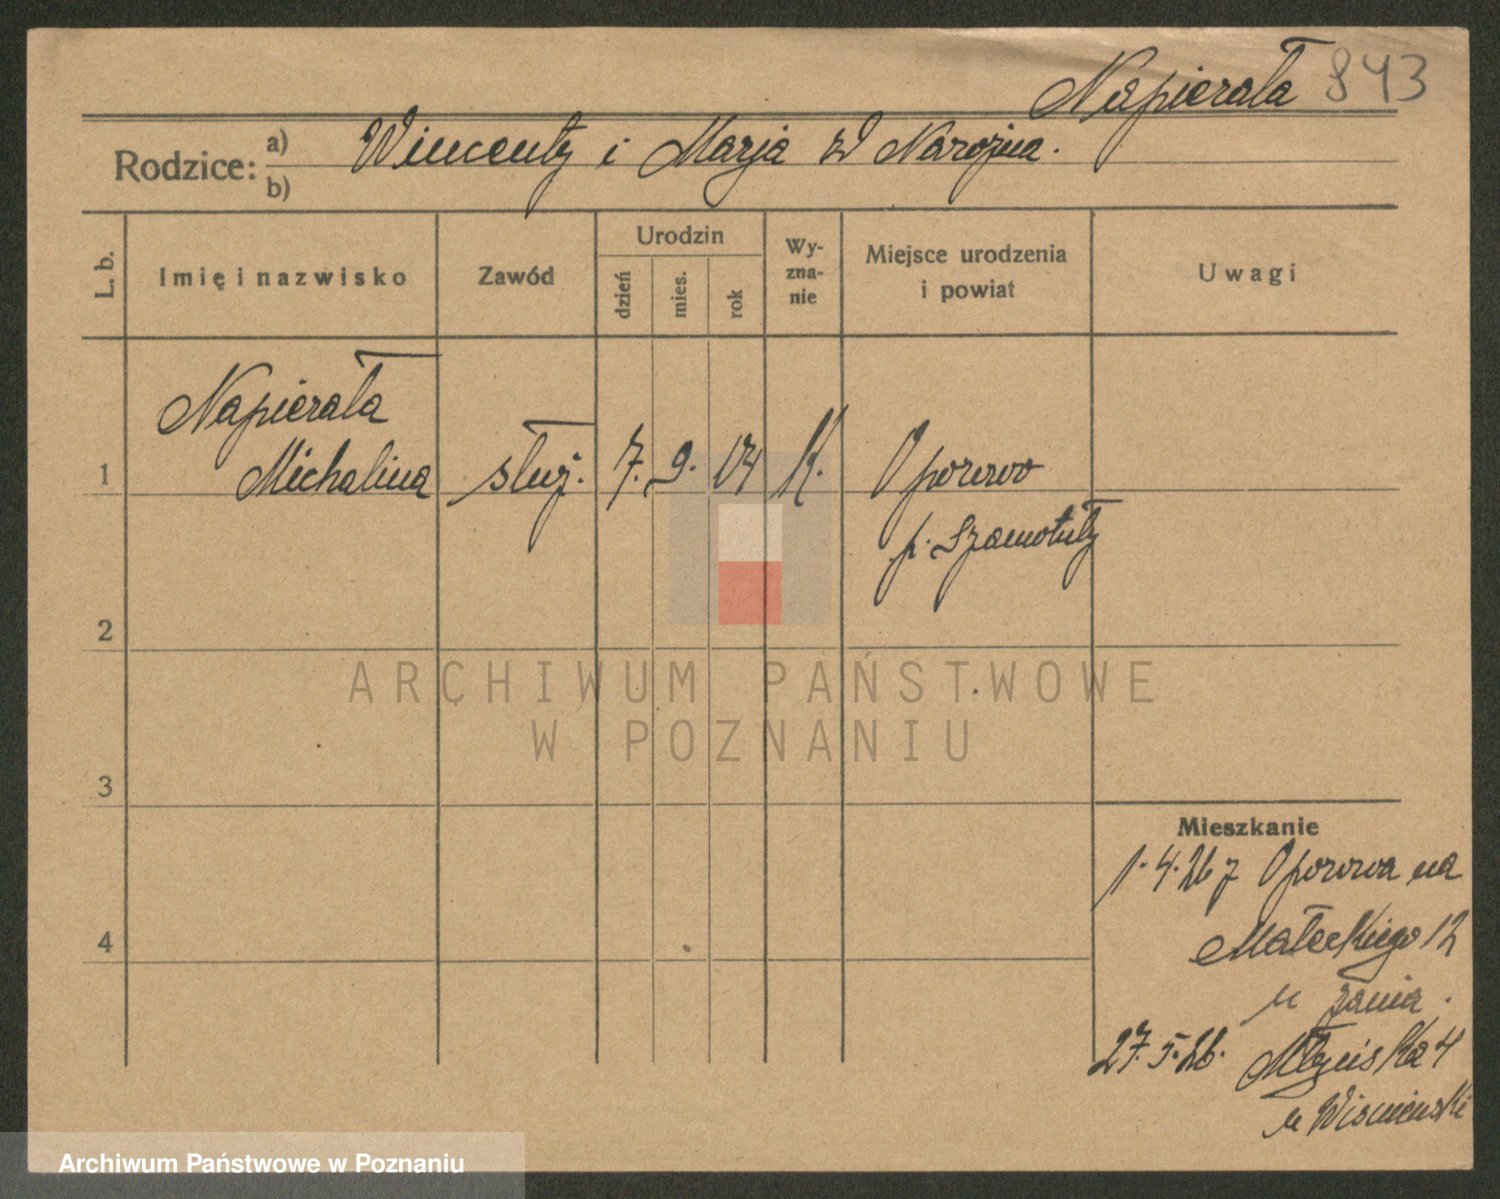 Napierała 843
Rodzice: a) Wincenty i Marja zd Narożna.
b)
L. b.
Imię i nazwisko
Zawód
Urodzin
dzień
mies.
rok
Wy-
zna-
nie
Miejsce urodzenia
i powiat
Uwagi
Napierała
1 Michalina służ. 7. 9. 04 K. Oporowo
p. Szamotuły
2
3
4
Mieszkanie
1.4.26 z Oporowa na
Małeckiego 12
u
27.5.26. Młyńska 4
u Wiśniewski
ARCHIWUM PAŃSTWOWE
W POZNANIU
Archiwum Państwowe w Poznaniu